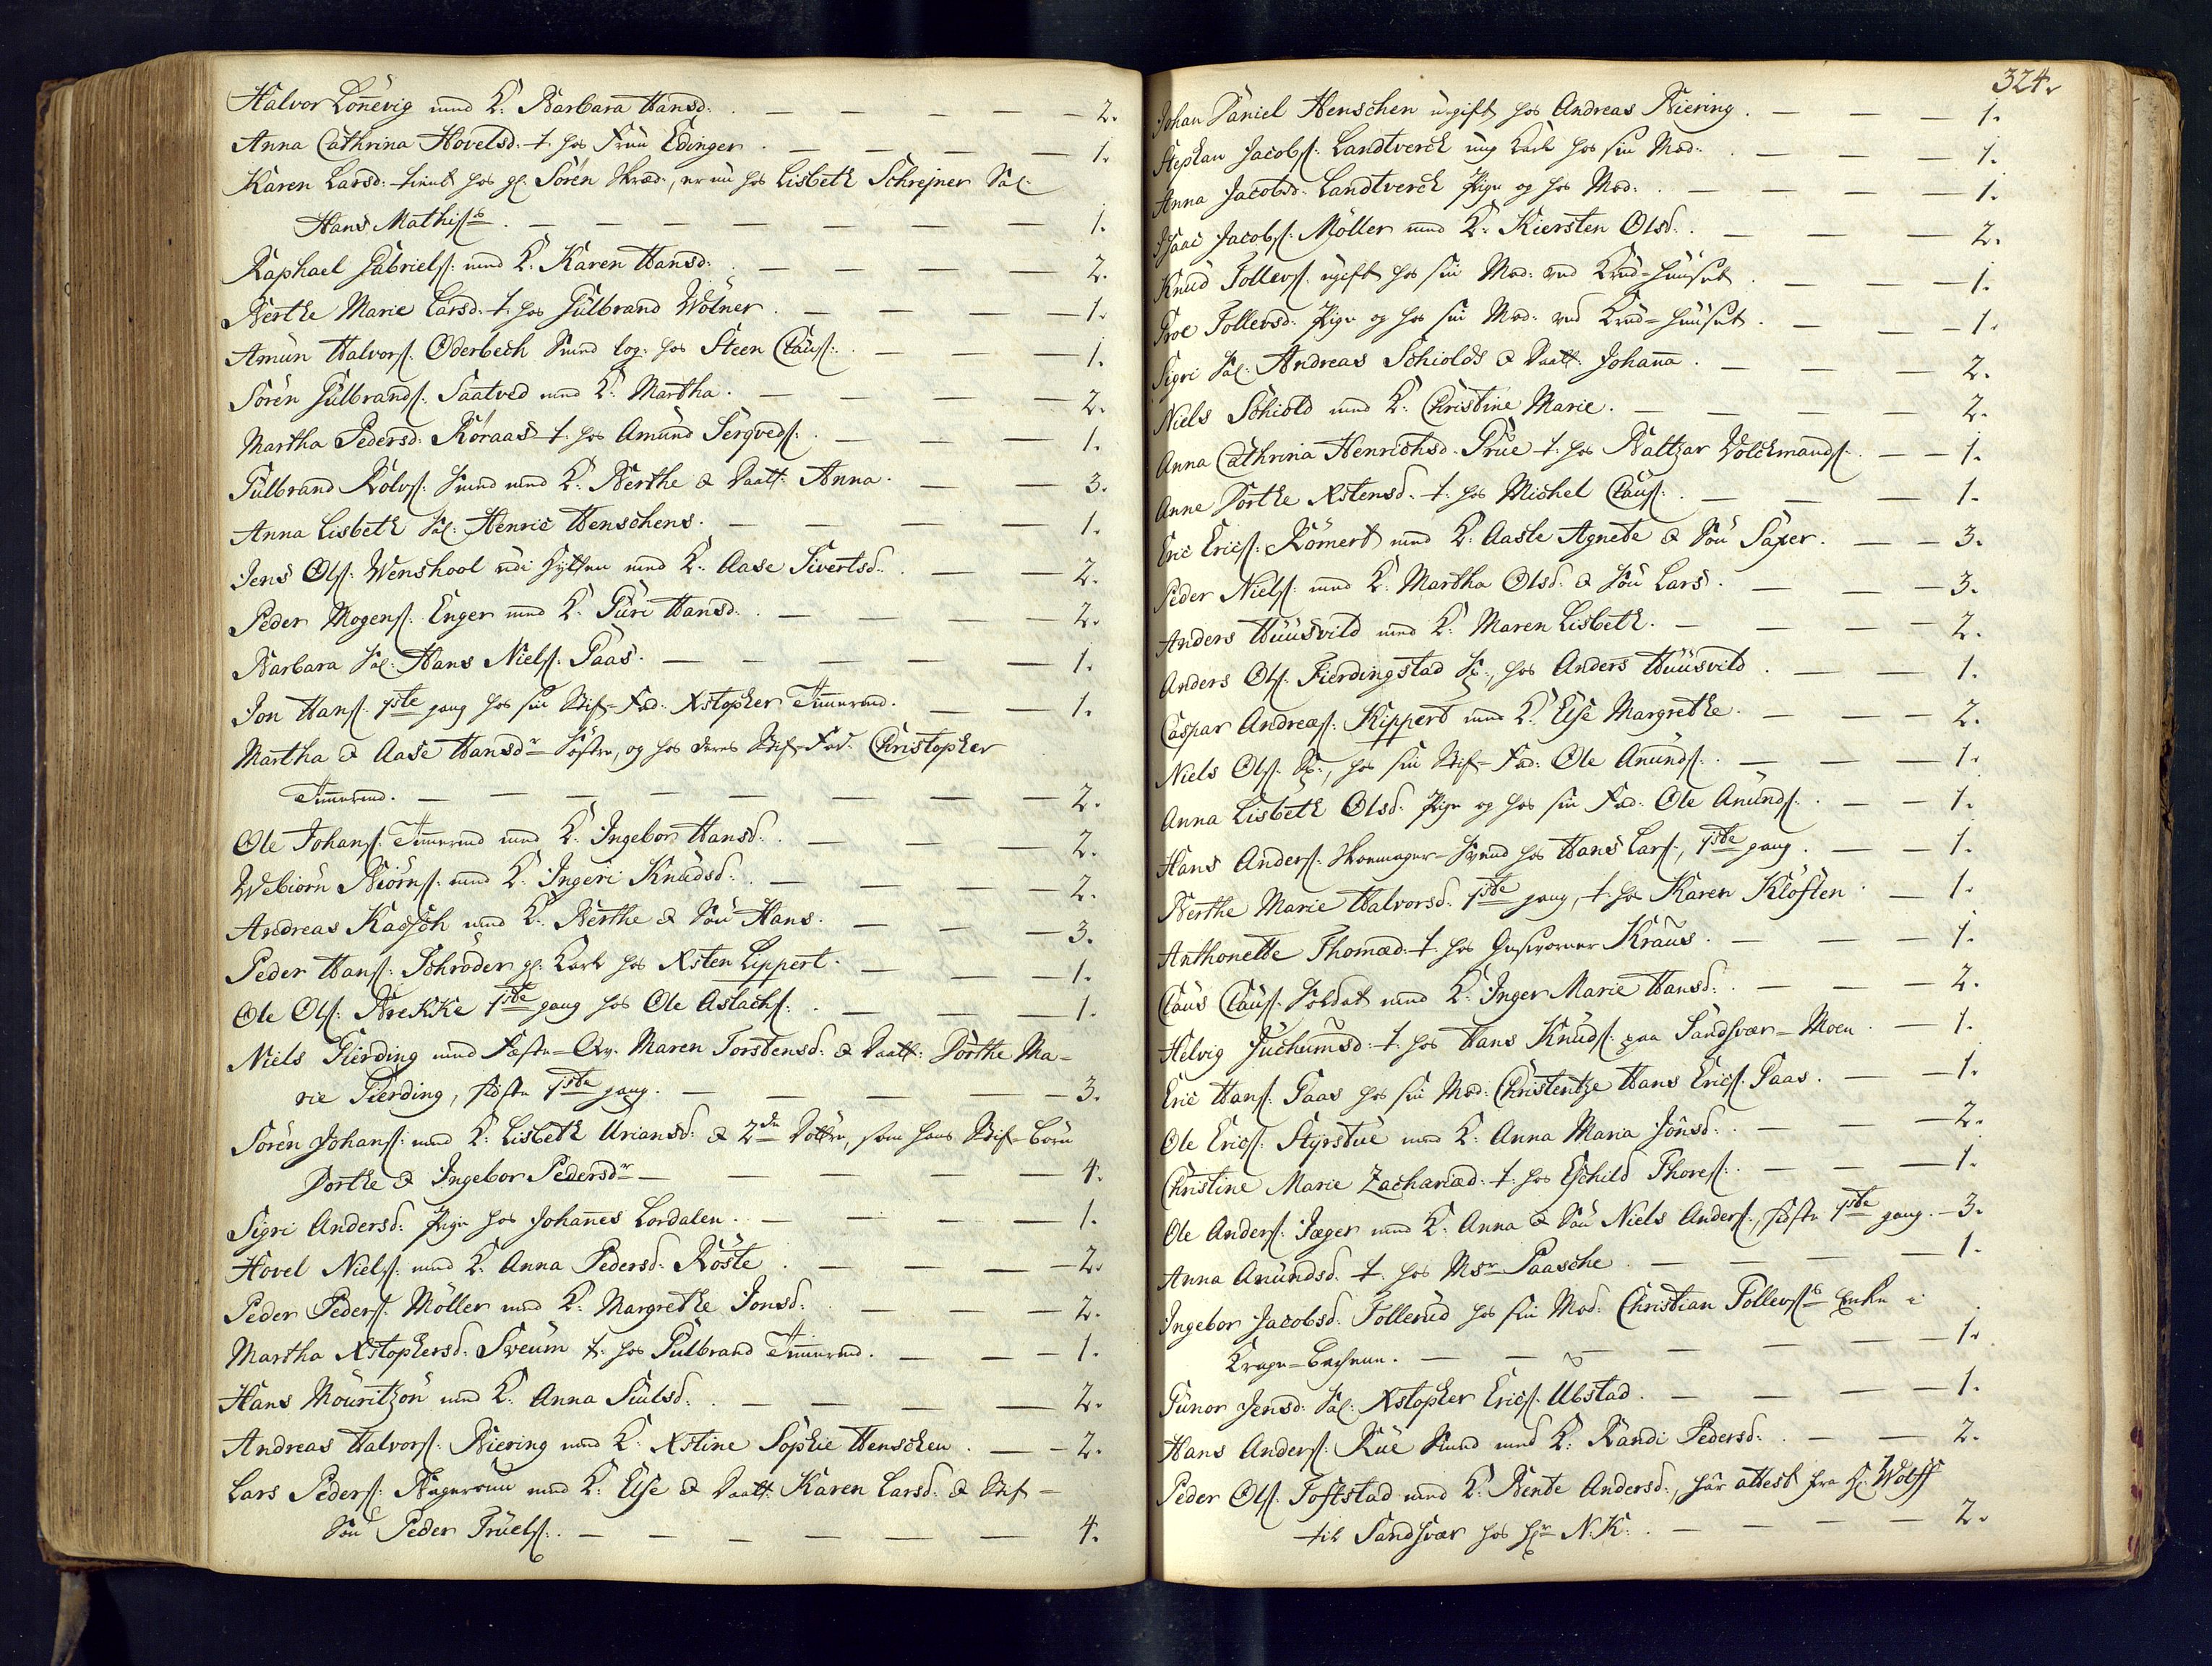 Halvor Lonnevig med K: Barbara Hansd: . — — — — — 2.
Anna Cathrina Hovelsd: t. hos Frue Edinger . — — — — 1.
Karen Larsd: tient hos gl: Sören Skræd:, er nu hos Lisbeth Schrejner Sal:
Hans Mathisß . — — — — — — — — 1.
Raphael Gabrielß: med K: Karen Hansd: . — — — — 2.
Berthe Marie Larsd: t. hos Gulbrand Wölner . — — — — 1.
Amun Halvorß: Oderbech Smed log: hos Steen Clausß: . — — — 1.
Sören Gulbrandß: Saatved med K: Martha . — — — — 2.
Martha Pedersd: Röraas t. hos Amund Sergvedß: . — — — 1.
Gulbrand Rolvß: Smed med K: Berthe & Daatt: Anna . — — 3.
Anna Lisbeth Sal: Henric Henschens . — — — — 1.
Jens Olß: Wenshool udi Hytten med K: Aase Sivertsd: . — — 2.
Peder Mogenß: Enger med K: Guri Hansd: . — — — — 2.
Barbara Sal: Hans Nielß: Paas . — — — — — 1.
Jon Hanß: 1ste gang hos sin Stif-Fad: Xstopher Timmermd. — — 1.
Martha & Aase Hansdr Söstre, og hos deres Stif-Fad: Christopher
Timmermd. — — — — — — — — 2.
Ole Johanß: Timmermd med K: Ingebor Hansd: . — — — 2.
Webiörn Biörnß: med K: Ingeri Knudsd: . — — — — 2.
Andreas Kadsch med K: Berthe & Sön Hans . — — — 3.
Peder Hanß: Schröder gl: Karl hos Xsten Lippert . — — — 1.
Ole Olß: Brekke 1ste gang hos Ole Aslachß: . — — — 1.
Niels Gierding med Fæste-Qv. Maren Torstensd: & Daatt: Dorthe Ma-
rie Gierding, sidste 1ste gang . — — — — — 3.
Sören Johanß: med K: Lisbeth Uriansd: & 2de Döttre, som hans Stif-Börn
Dorthe & Ingebor Pedersdr — — — — — 4.
Sigri Andersd: Pige hos Johannes Lordalen . — — — — 1.
Hovel Nielß: med K: Anna Pedersd: Röste . — — — — 2.
Peder Pederß: Möller med K: Margrethe Jonsd: . — — — 2.
Martha Xstophersd: Sveum t. hos Gulbrand Timmermd. — — — 1.
Hans Mouritzön med K: Anna Siulsd: . — — — — 2.
Andreas Halvorß: Biering med K: Xstine Sophie Henschen . — — 2.
Lars Pederß: med K: Else & Daatt: Karen Larsd: & Stif-
Sön Peder Truelß: . — — — — — — 4.
324.
Johan Daniel Henschen ugift hos Andreas Biering . — — — 1.
Stephan Jacobß: Landtverck ung Karl hos sin Mod: . — — — 1.
Anna Jacobsd: Landtverck Pige og hos Mod: . — — — — 1.
Isaac Jacobß: Möller med K: Kiersten Olsd: . — — — 2.
Knud Tollevß: ugift hos sin Mod: ved Krud-Huuset . — — 1.
Troe Tollevsd: Pige og hos sin Mod: ved Krud-Huuset . — — 1.
Sigri Sal: Andreas Schiolds & Daatt: Johanna . — — — 2.
Niels Schiold med K: Christine Marie . — — — — 2.
Anna Cathrina Henrichsd. Prüe t. hos Baltzar Volckmandß: . — 1.
Anne Dorthe Xstensd: t. hos Michel Clausß: . — — — 1.
Eric Ericß: Römert med K: Aasle Agnete & Sön Saxer . — — 3.
Peder Nielß: med K: Martha Olsd: & Sön Lars . — — — 3.
Anders Huusvild med K: Maren Lisbeth . — — — — 2.
Anders Olß: Fierdingstad hos Anders Huusvild . — — 1.
Caspar Andreaß: Kippert med K: Else Margrethe . — — — 2.
Niels Olß: hos sin Stif-Fad: Ole Anundß: . — — — 1.
Anna Lisbeth Olsd: Pige og hos sin Fad: Ole Anundß: . — — 1.
Hans Anderß: Skoemager-Svend hos Hans Larß:, 1ste gang . — — 1.
Berthe Marie Halvorsd: 1ste gang, t. hos Karen Klöften . — 1.
Anthonette Thomæd: t. hos Kraus . — — — 1.
Claus Clausß: Soldat med K: Inger Marie Hansd: . — — — 2.
Helvig Juchumsd: t. hos Hans Knudß: paa Sandsvær-Moen . — 1.
Eric Hanß: Paas hos sin Mod: Christentze Hans Ericß: Paas . — 1.
Ole Ericß: Styrstue med K: Anna Maria Jönsd: . — — — 2.
Christine Marie Zachariæd: t. hos Eschild Thoreß: . — — — 1.
Ole Anderß: Jæger med K: Anna & Sön Niels Anderß:, sidste 1ste gang . — 3.
Anna Anundsd: t. hos Msr Paasche . — — — — 1.
Ingebor Jacobsd: Tollerud hos sin Mod: Christian Tollevßs Enke i
Krage-Bachene . — — — — — — 1.
Gunor Jensd: Sal: Xstopher Ericß: Ubstad . — — — — 1.
Hans Anderß: Rue Smed med K: Randi Pedersd: . — — 2.
Peder Olß: Toftstad med K: Bente Andersd:, har attest fra Hr: Wolff
til Sandsvær hos Hr N.K: . — — — — 2.